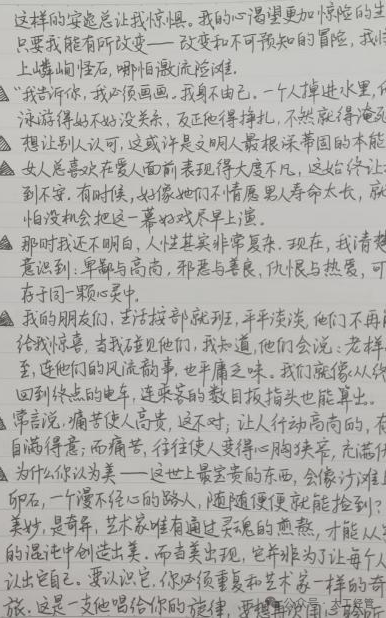 这样的安逸总让我惊惧。我的心渴望更加惊险的生
只要我能有所改变——改变和不可预知的冒险,我
上嶙峋怪石,哪怕激流险滩.
"我告诉你,我必须画画。我身不由己。一个人掉进水里,
泳游得好不好没关系,反正他得挣扎,不然就得淹
想让别人认可,这或许是文明人最根深蒂固的本能
女人总喜欢在爱人面前表现得大度不凡,这始终让
到不安.有时候,好像她们不情愿男人寿命太长,就
怕没机会把这一幕好戏尽早上演.
那时我还不明白,人性其实非常复杂.现在,我清楚
意识到:卑鄙与高尚,邪恶与善良,仇恨与热爱,可
存于同一颗心灵中.
我的朋友们,生活按部就班,平平淡淡,他们不再
给我惊喜,当我碰见他们,我知道,他们会说:老样
至,连他们的风流韵事,也平庸乏味.我们就像从终
回到终点的电车,连乘客的数目扳指头也能算出。
常言说,痛苦使人高贵,这不对;让人行动高尚的,有
自满得意;而痛苦,往往使人变得心胸狭窄,充满
为什么你认为美——这世上最宝贵的东西,会像沙滩上
卵石,一个漫不经心的路人,随随便便就能捡到?
美妙,是奇异,艺术家唯有通过灵魂的煎熬,才能从
的混沌中创造出美.而当美出现,它并非为了让每个人
认出它自己。要认识它,你必须重复和艺术家一样的奇
旅.这是一支他唱给你的旋律,要想再次用心聆听